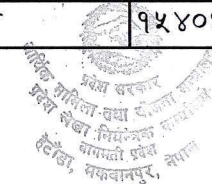 १५४०
प्रदेश सरकार
आर्थिक मामिला तथा योजना मन्त्रालय
प्रदेश लेखा नियन्त्रक कार्यालय
बागमती प्रदेश
हेटौंडा, मकवानपुर, नेपाल